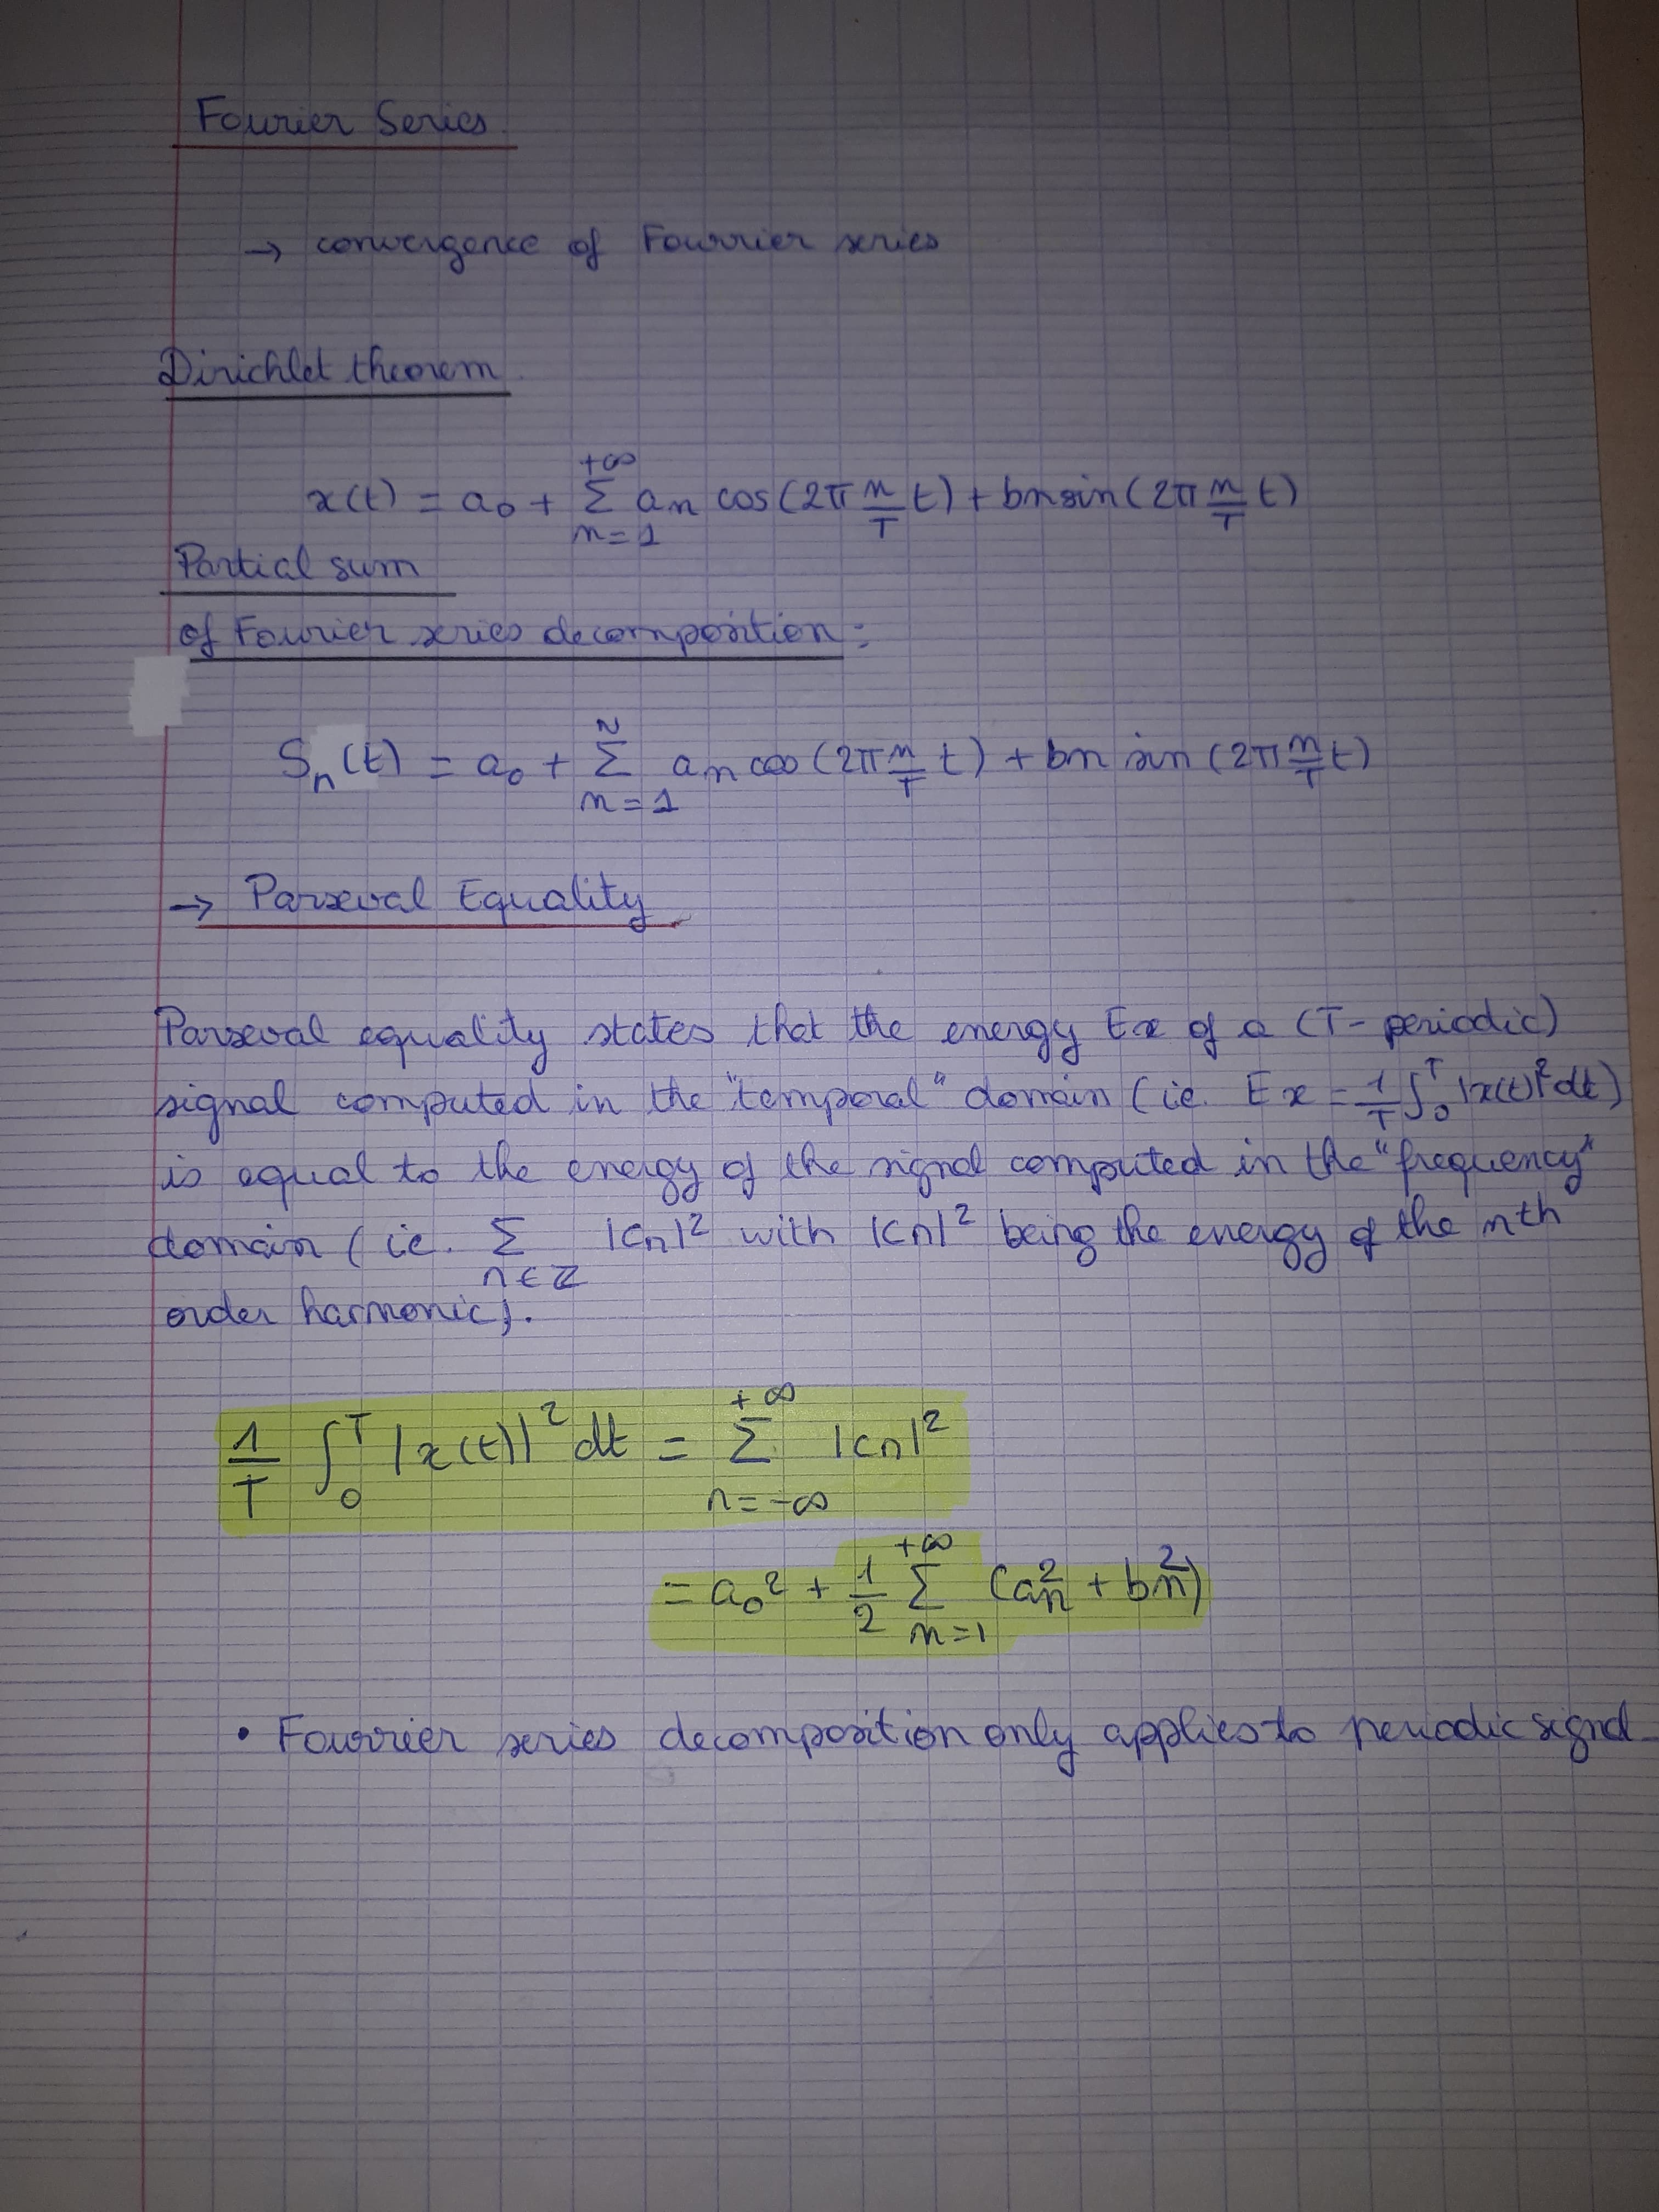 Fourier Series
→ convergence of Fourrier series
Dirichlet theorem
x(t) = a₀ + Σ_{n=1}^{+∞} an cos(2π n/T t) + bn sin(2π n/T t)
Partial sum
of Fourier series decomposition:
Sn(t) = a₀ + Σ_{n=1}^{N} an cos(2π n/T t) + bn sin(2π n/T t)
→ Parseval Equality
Parseval equality states that the energy Ex of a (T-periodic)
signal computed in the "temporal" domain (ie. Ex = 1/T ∫₀ᵀ |x(t)|² dt)
is equal to the energy of the signal computed in the "frequency"
domain (ie. Σ_{n∈ℤ} |cn|² with |cn|² being the energy of the nth
order harmonic).
1/T ∫₀ᵀ |x(t)|² dt = Σ_{n=-∞}^{+∞} |cn|²
= a₀² + 1/2 Σ_{n=1}^{+∞} (an² + bn²)
• Fourrier series decomposition only applies to periodic signal